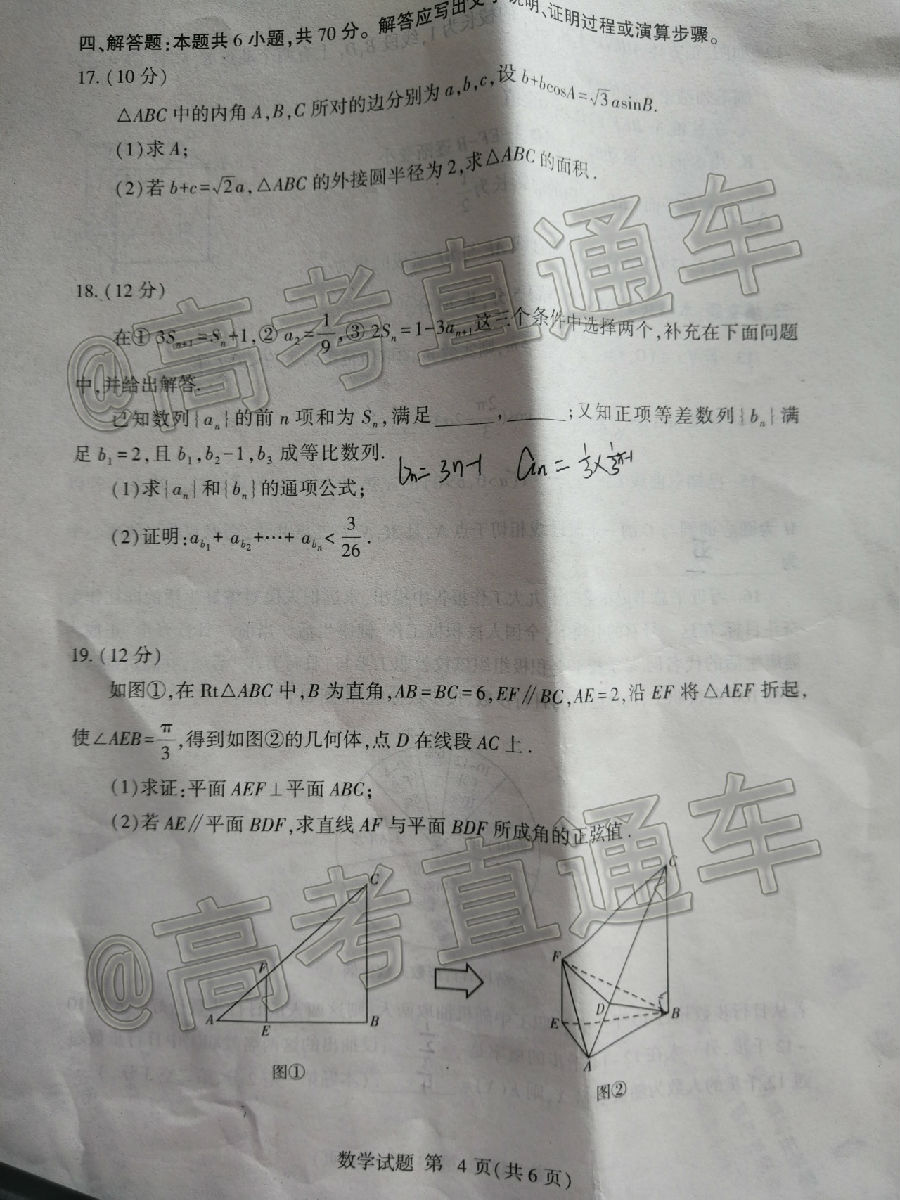 四、解答题:本题共6小题,共70分。解答应写出文字说明、证明过程或演算步骤。
17.(10分)
△ABC中的内角A,B,C所对的边分别为a,b,c,设b+bcosA=√3asinB.
(1)求A;
(2)若b+c=√2a,△ABC的外接圆半径为2,求△ABC的面积.
18.(12分)
在①3Sₙ₊₁=Sₙ+1,②a₂=1/9,③2Sₙ=1-3aₙ₊₁这三个条件中选择两个,补充在下面问题
中,并给出解答.
已知数列{aₙ}的前n项和为Sₙ,满足______,______;又知正项等差数列{bₙ}满
足b₁=2,且b₁,b₂-1,b₃成等比数列.
bn=3n-1 an=1/3×1/3ⁿ⁻¹
(1)求{aₙ}和{bₙ}的通项公式;
(2)证明:a_{b₁}+a_{b₂}+⋯+a_{bₙ}<3/26.
19.(12分)
如图①,在Rt△ABC中,B为直角,AB=BC=6,EF∥BC,AE=2,沿EF将△AEF折起,
使∠AEB=π/3,得到如图②的几何体,点D在线段AC上.
(1)求证:平面AEF⊥平面ABC;
(2)若AE∥平面BDF,求直线AF与平面BDF所成角的正弦值.
C
F
A
E
B
图①
C
F
E
D
B
A
图②
数学试题 第4页(共6页)
@高考直通车
@高考直通车